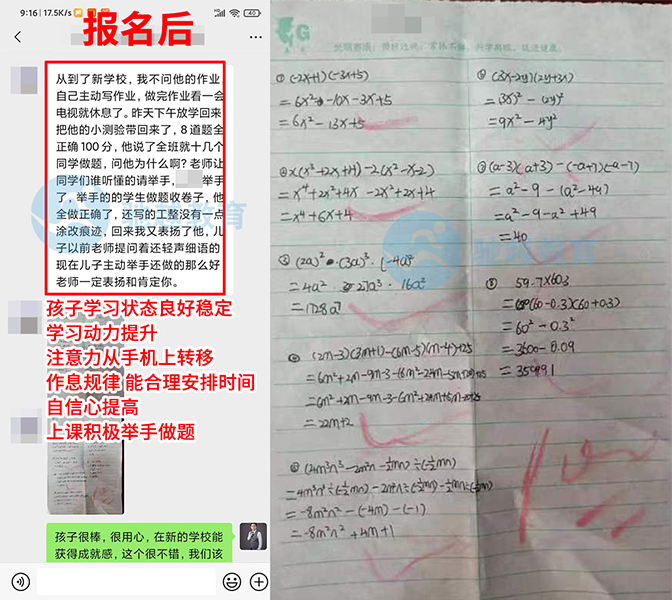 9:16
17.5K/s
40
报名后
从到了新学校，我不问他的作业
自己主动写作业，做完作业看一会
电视就休息了。昨天下午放学回来
把他的小测验带回来了，8道题全
正确100分，他说了全班就十几个
同学做题，问他为什么啊？老师让
同学们谁听懂的请举手，
举手
了，举手的的学生做题收卷子，他
全做正确了，还写的工整没有一点
涂改痕迹，回来我又表扬了他，儿
子以前老师提问着还轻声细语的
现在儿子主动举手还做的那么好
老师一定表扬和肯定你。
孩子学习状态良好稳定
学习动力提升
注意力从手机上转移
作息规律 能合理安排时间
自信心提高
上课积极举手做题
孩子很棒，很用心，在新的学校能
获得成就感，这个很不错，我们该
① (-2x+1)(-3x+5)
= 6x² - 10x - 3x + 5
= 6x² - 13x + 5
x(x³+2x+4) - 2(x²-x-2)
= x⁴ + 2x² + 4x - 2x² + 2x + 4
= x⁴ + 6x + 4
(2a)² · (3a)³ · (-4a)²
= 4a² · 27a³ · 16a²
= 1728a⁷
(2m-3)(3m+1)-(6m-5)(m-4)+25
= 22m+2
= -8m²n² - (-4m) - (-1)
= -8m²n² + 4m + 1
(3x-2y)(2y+3x)
= (3x)² - (2y)²
= 9x² - 4y²
(a-3)(a+3) - (-a+7)(-a-7)
= a² - 9 - (a² - 49)
= a² - 9 - a² + 49
= 40
59.7×60.3
= (60-0.3)(60+0.3)
= 60² - 0.3²
= 3600 - 0.09